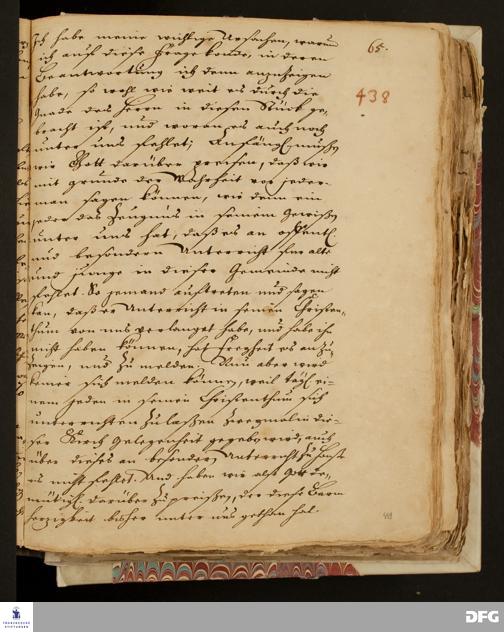 65.
438
Ich habe meine wichtige Ursachen, warum
ich auf diese Frage kom̃e, in deren
Beantwortung ich denn anzuzeigen
habe, so wohl wie weit es durch die
Gnade des Herrn in diesem Stück ge-
bracht ist, und woran es auch noch
unter uns fehlet; Anfängl. müssen
wir Gott darüber preisen, daß wir
mit grunde der Wahrheit vor jeder-
man sagen können, wie denn ein
jeder das Zeugnis in seinem Gewissen
unter uns hat, daß es an öffentl.
und besondern Unterricht für alte
und junge in dieser Gemeinde nicht
fehlet. So jemand auftreten und sagen
kan, daß er Unterricht in seinem Christen-
thum von uns verlanget habe, und habe ihn
nicht haben können, hat Freyheit es anzu-
zeigen, und zu melden. Nun aber wird
keiner sich melden können, weil tägl. ei-
nem jeden in seinem Christenthum sich
unterrichten zu lassen zweymal in die-
ser Kirch Gelegenheit gegeben wird, auch
über dieses an besondern Unterricht zu Hause
es nicht fehlet. Und haben wir also Gott de-
mütigl. darüber zu preisen, der diese Barm-
herzigkeit bisher unter uns gethan hat.
FRANCKESCHE
STIFTUNGEN
DFG